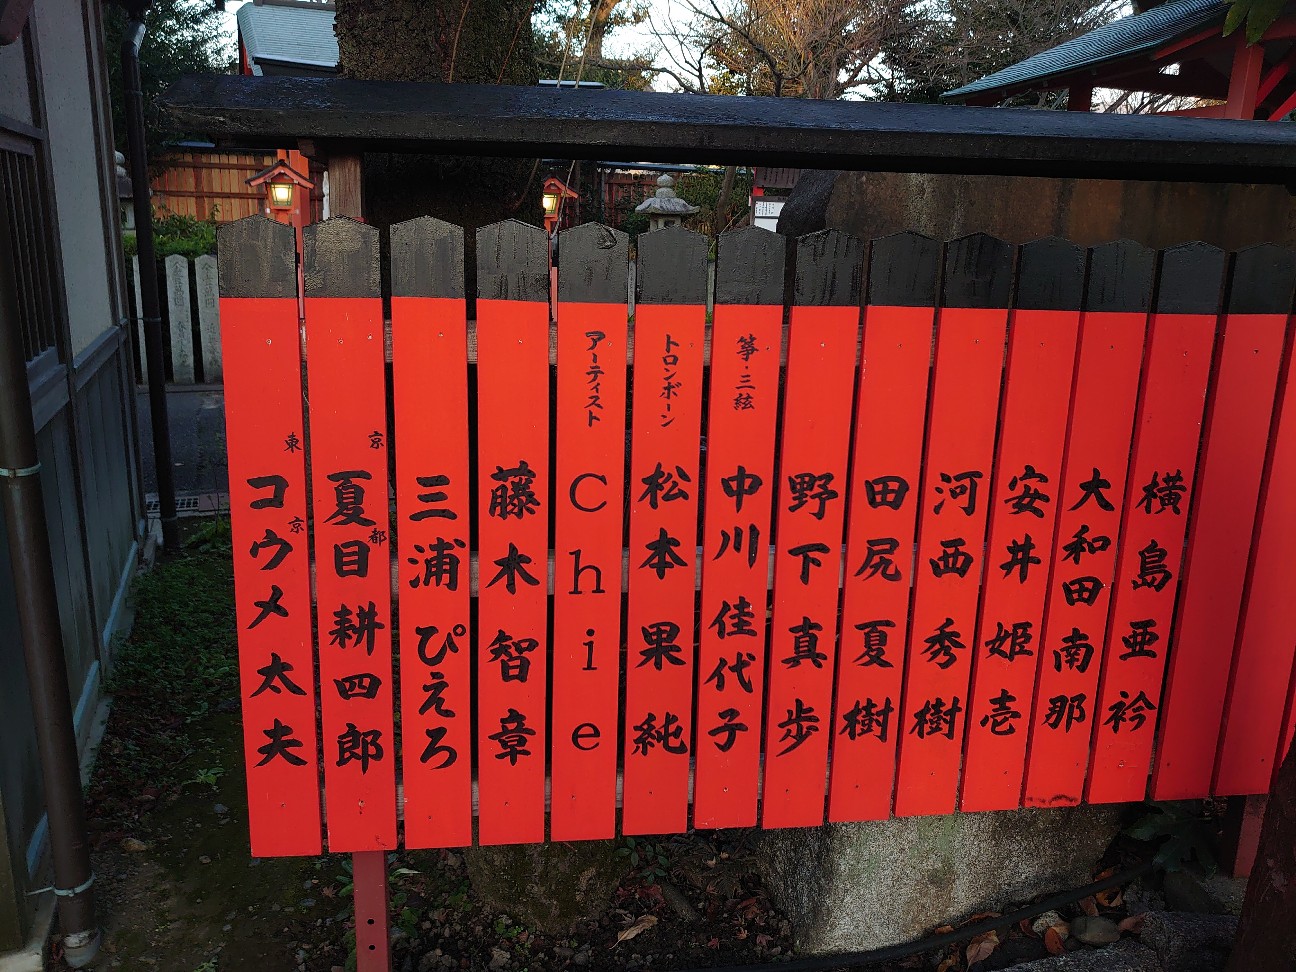 横島亜衿
大和田南那
安井姫壱
河西秀樹
田尻夏樹
野下真歩
箏・三絃
中川佳代子
トロンボーン
松本果純
アーティスト
Chie
藤木智章
三浦ぴえろ
京都
夏目耕四郎
東京
コウメ太夫